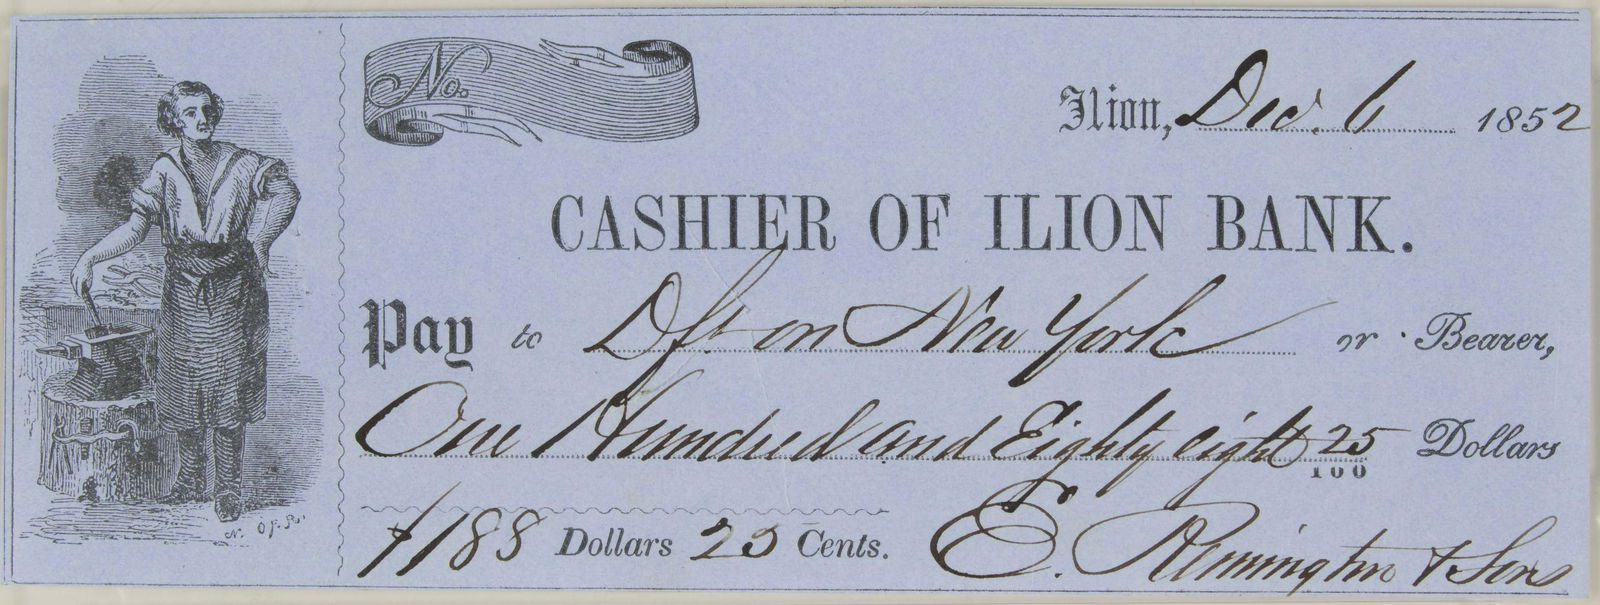 No.
Ilion, Dec. 6 1852
CASHIER OF ILION BANK.
Pay to Dft on New York or Bearer,
One Hundred and Eighty eight 25/100 Dollars
$188 Dollars 25 Cents.
E. Remington & Sons